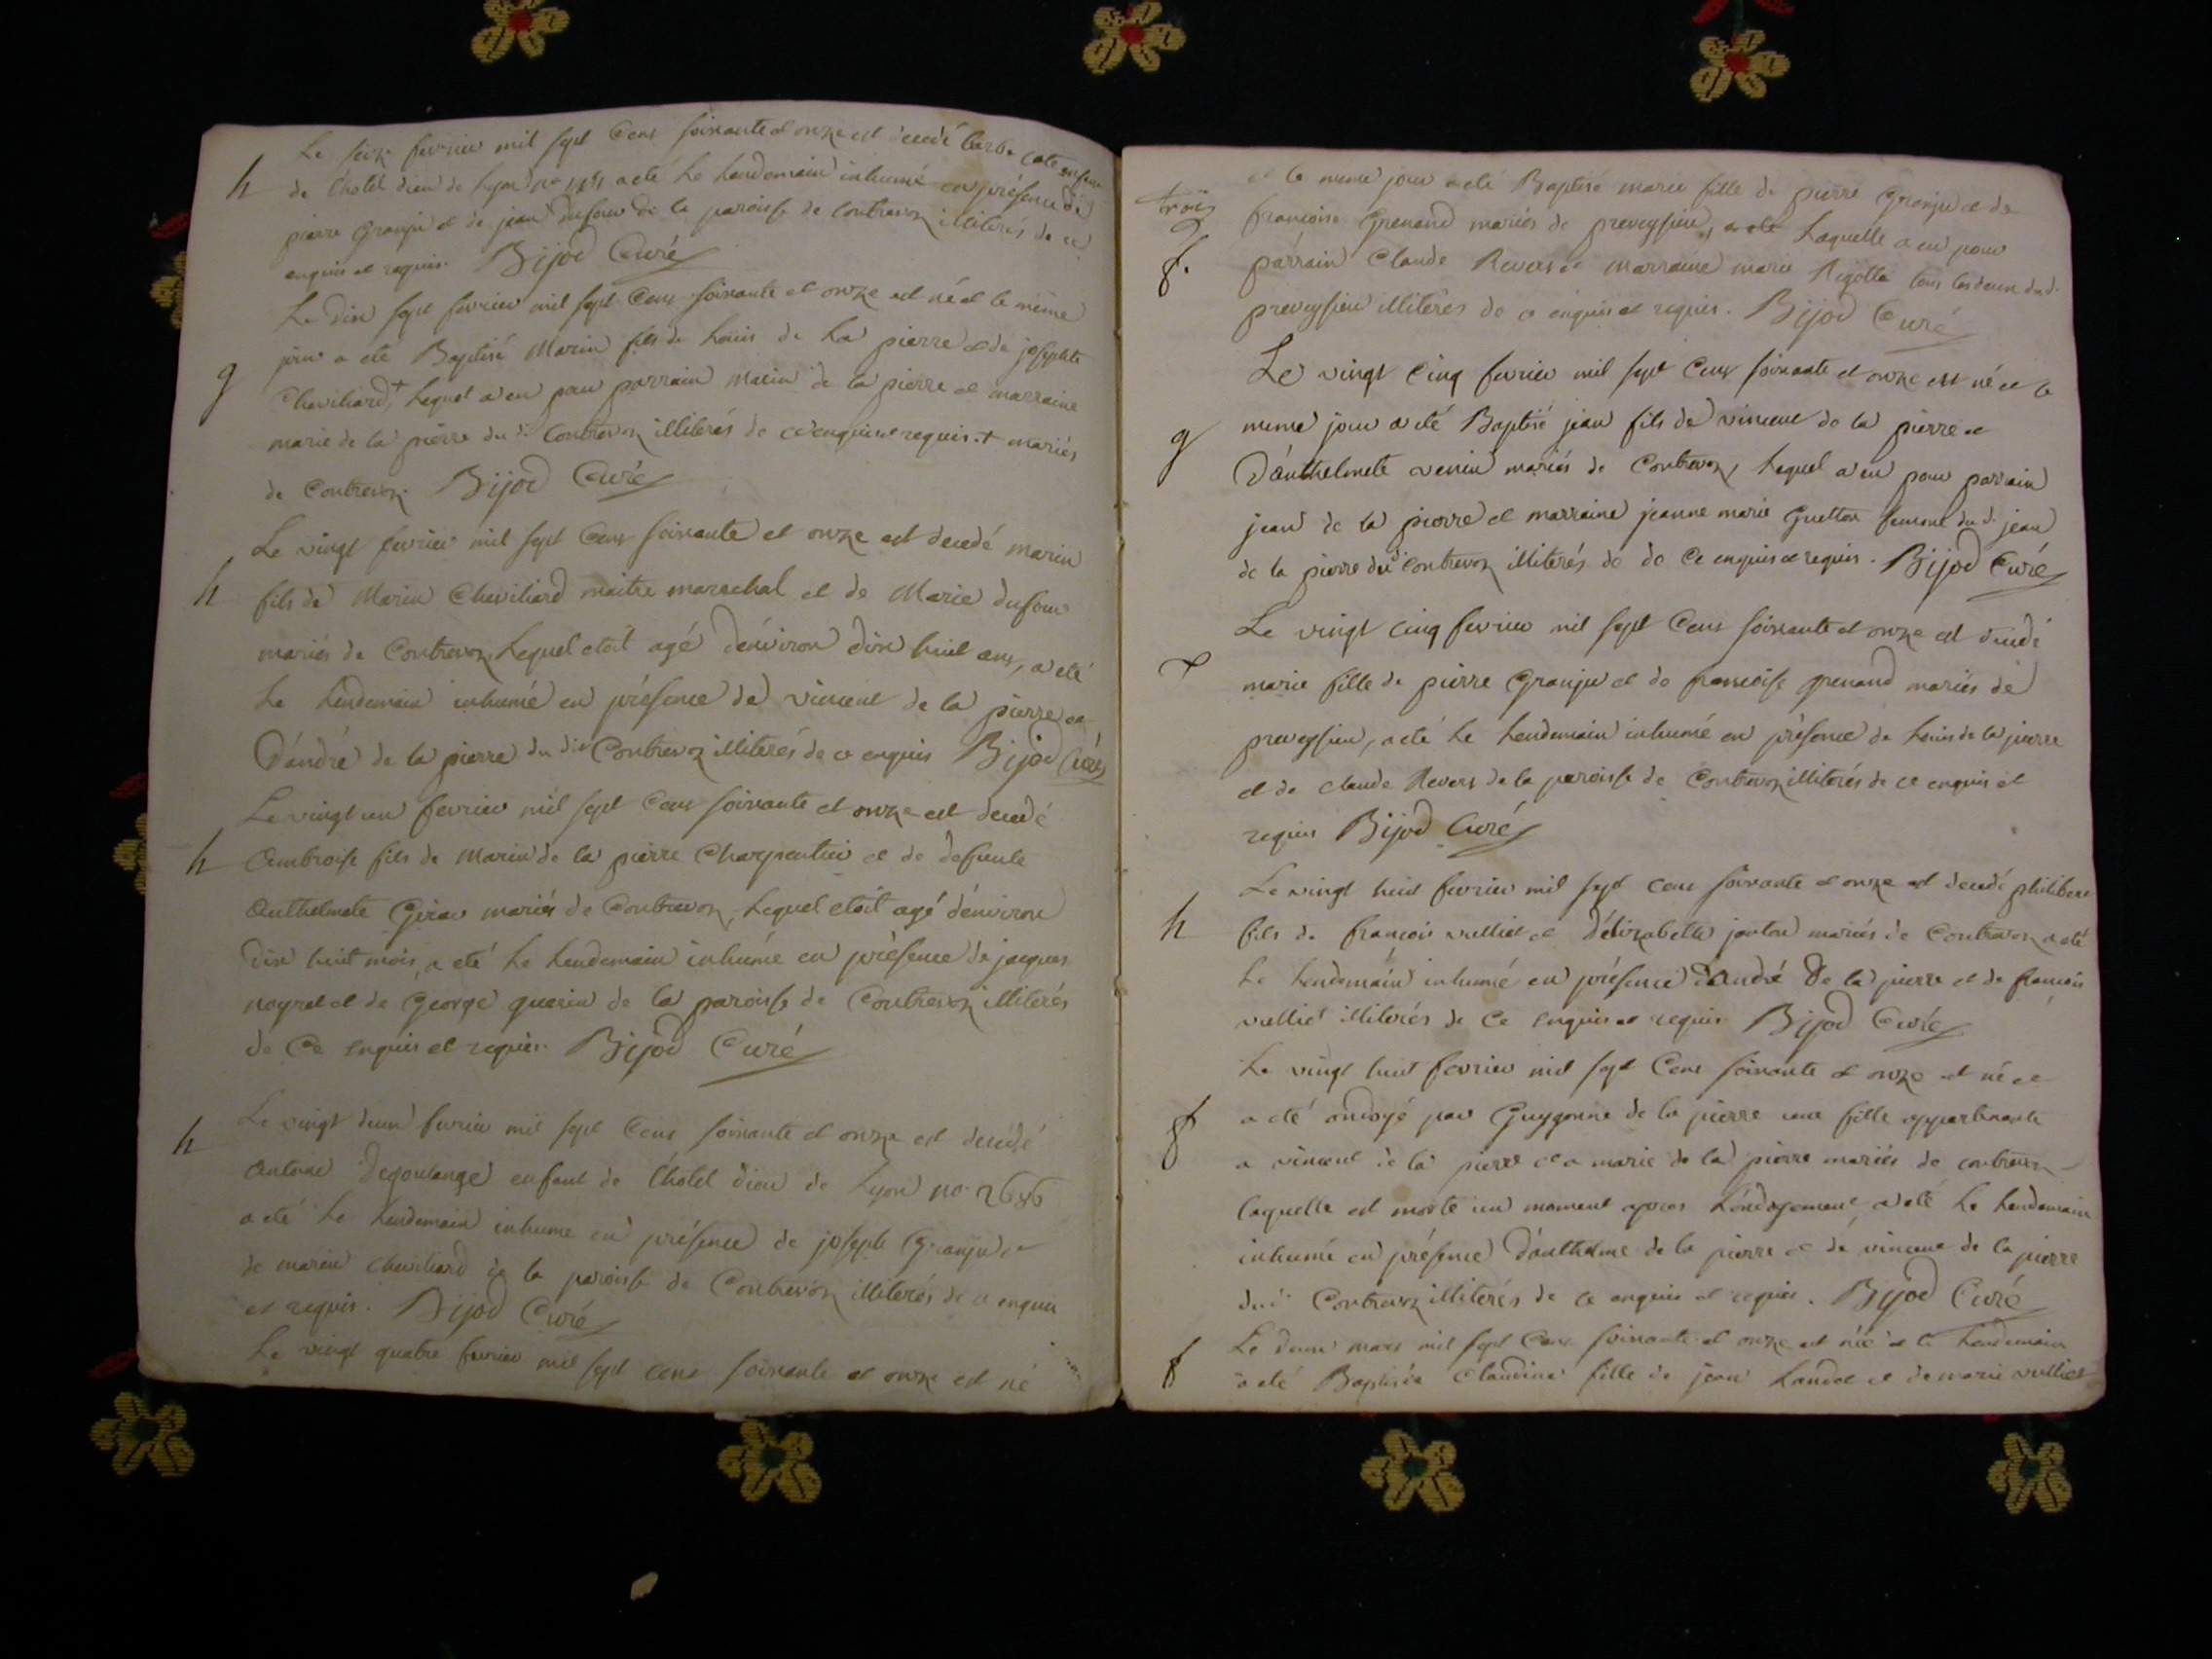 Le seize fevrier mil sept Cens soixante et onze est decedé
h
de l'hotel dieu de Lyon no a eté Le Lendemain inhumé en présence de
pierre Granju et de jean dufour de la paroisse de Contrevoz illiterés de ce
enquis et requis. Bijod Curé
Le dix sept fevrier mil sept Cens soixante et onze est né et le même
jour a eté Baptisé Marin fils de Louis de La pierre et de josephte
g
Chevilliard + Lequel a eu pour parrain Marin de la pierre et marraine
marie de la pierre du d. Contrevoz illiterés de ce enquis et requis. + mariés
de Contrevoz. Bijod Curé
Le vingt fevrier mil sept Cens soixante et onze est decedé marin
h
fils de Marin Chevilliard maitre marechal et de Marie dufour
mariés de Contrevoz Lequel etoit agé d'environ dix huit ans, a eté
Le Lendemain inhumé en présence de vincent de la pierre et
D'andré de la pierre du dit Contrevoz illiterés de ce enquis Bijod Curé
Le vingt un fevrier mil sept Cens soixante et onze est decedé
h
Ambroise fils de Marin de la pierre Charpentier et de defunte
Anthelmete mariés de Contrevoz, Lequel etoit agé d'environ
dix huit mois, a eté Le Lendemain inhumé en présence de jacques
noyret et de George querin de la paroisse de Contrevoz illiterés
de Ce enquis et requis. Bijod Curé
Le vingt deux fevrier mil sept Cens soixante et onze est decedé
h
Antoine enfant de l'hotel dieu de Lyon no
a eté Le Lendemain inhumé en présence de joseph Granju et
de marin chevilliard de la paroisse de Contrevoz illiterés de ce enquis
et requis. Bijod Curé
Le vingt quatre fevrier mil sept cens soixante et onze est né
et le meme jour a eté Baptisé marie fille de pierre Granju et de
trois
francoise Grenand mariés de preveyssieu, a eté Laquelle a eu pour
f.
parrain Claude Revers et marraine marie Rigollet tous les deux du d.
preveyssieu illiterés de ce enquis et requis. Bijod Curé
Le vingt Cinq fevrier mil sept Cens soixante et onze est né et le
g
meme jour a eté Baptisé jean fils de vincent de la pierre et
D'anthelmete venin mariés de Contrevoz, Lequel a eu pour parrain
jean de la pierre et marraine jeanne marie femme du d. jean
de la pierre du d. Contrevoz illiterés de de Ce enquis et requis. Bijod Curé
Le vingt cinq fevrier mil sept Cens soixante et onze est decedé
marie fille de pierre Granju et de francoise grenand mariés de
preveyssieu, a eté Le Lendemain inhumé en présence de Louis de la pierre
et de claude Revers de la paroisse de Contrevoz illiterés de ce enquis et
requis Bijod Curé
Le vingt huit fevrier mil sept cens soixante et onze est decedé philibert
h
fils de francois vulliet et d'elizabette mariés de Contrevoz a eté
Le Lendemain inhumé en présence d'André De la pierre et de francois
vulliet illiterés de Ce enquis et requis. Bijod Curé
Le vingt huit fevrier mil sept Cens soixante et onze est né et
f
a eté ondoyé par Guygonne de la pierre une fille appartenante
a vincent de la pierre et a marie de la pierre mariés de contrevoz
laquelle est morte un moment apres L'ondoyement a eté Le Lendemain
inhumé en présence D'anthelme de la pierre et de vincent de la pierre
du d. Contrevoz illiterés de ce enquis et requis. Bijod Curé
Le deux mars mil sept Cens soixante et onze est née et le Lendemain
f
a eté Baptisée Claudine fille de jean Landoz et de marie vulliet